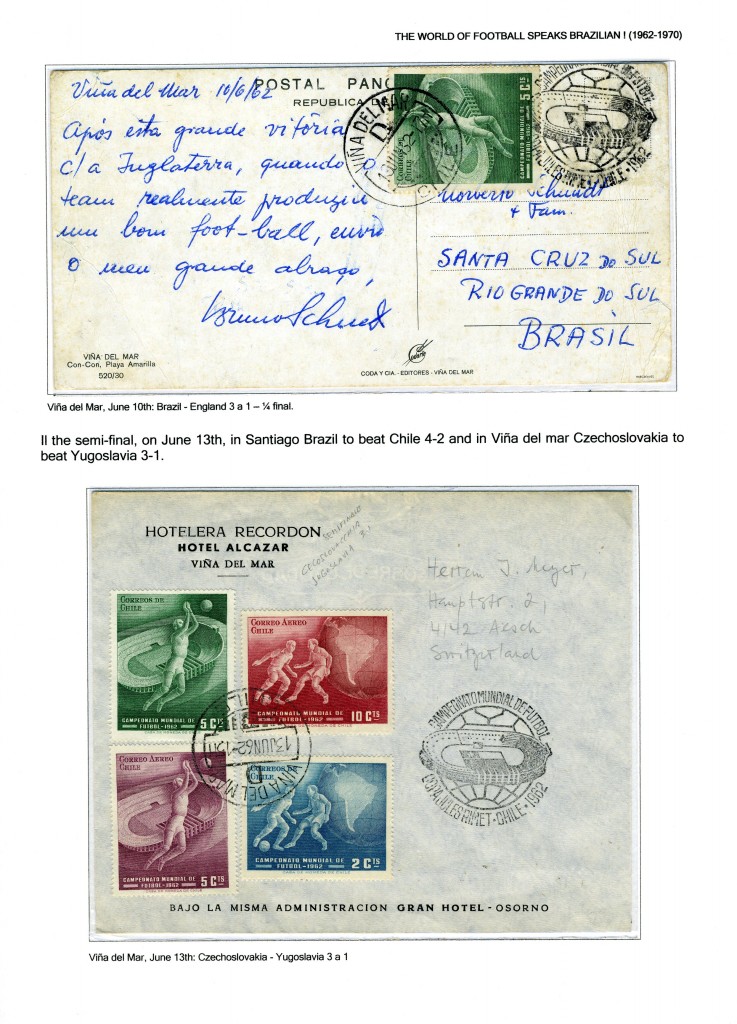 THE WORLD OF FOOTBALL SPEAKS BRAZILIAN ! (1962-1970)
Viña del Mar 10/6/62
POSTAL PANO
REPUBLICA DE
Após esta grande vitória
c/a Inglaterra, quando o
team realmente produziu
um bom foot-ball, envio
o meu grande abraço,
Bruno Schmidt
CORREOS DE CHILE
CAMPEONATO MUNDIAL DE
FUTBOL-1962
5 CTS
VIÑA DEL MAR
CAMPEONATO MUNDIAL DE FUTBOL
COPA JULES RIMET - CHILE - 1962
Norberto Schmidt
+ Fam.
SANTA CRUZ DO SUL
RIO GRANDE DO SUL
BRASIL
VIÑA DEL MAR
Con-Con, Playa Amarilla
520/30
CODA Y CIA. - EDITORES - VIÑA DEL MAR
Viña del Mar, June 10th: Brazil - England 3 a 1 – ¼ final.
Il the semi-final, on June 13th, in Santiago Brazil to beat Chile 4-2 and in Viña del mar Czechoslovakia to
beat Yugoslavia 3-1.
HOTELERA RECORDON
HOTEL ALCAZAR
VIÑA DEL MAR
JUGOSLAVIA 3:1
Herrn J. Meyer,
Hauptstr. 2,
4142 Aesch
Switzerland
CORREOS DE
CHILE
CAMPEONATO MUNDIAL DE
FUTBOL-1962
5 CTS
CASA DE MONEDA DE CHILE
CORREO AEREO
CHILE
CAMPEONATO MUNDIAL DE
FUTBOL-1962
10 CTS
CASA DE MONEDA DE CHILE
13 JUN 62-12
VIÑA DEL MAR
CORREO AEREO
CHILE
CAMPEONATO MUNDIAL DE
FUTBOL-1962
5 CTS
CASA DE MONEDA DE CHILE
CORREOS DE
CHILE
CAMPEONATO MUNDIAL DE
FUTBOL-1962
2 CTS
CASA DE MONEDA DE CHILE
CAMPEONATO MUNDIAL DE FUTBOL
COPA JULES RIMET - CHILE - 1962
BAJO LA MISMA ADMINISTRACION GRAN HOTEL - OSORNO
Viña del Mar, June 13th: Czechoslovakia - Yugoslavia 3 a 1